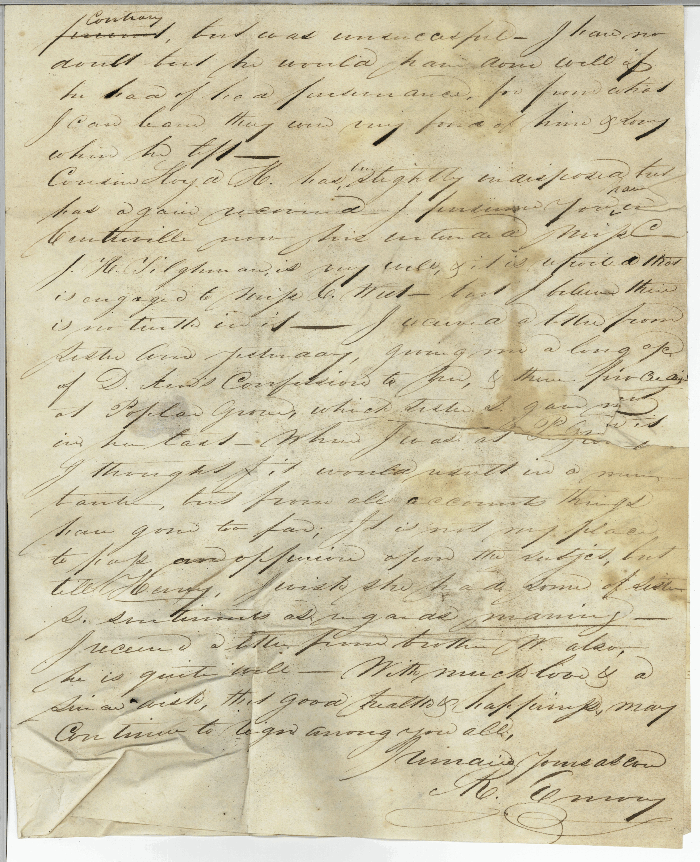 Contrary
, but was unsuccesful – I have no
doubt but he would have done well if
he had of had perseverance, for from what
I can learn they were very fond of him & sorry
when he left —
Cousin Lloyd H. has been slightly indisposed, but
has again recovered – I presume you were in
Centreville now his intended Miss C –
J. H. Tilghman, is very well, & it is a that
is engaged to Miss C. West – but I believe there
is no truth in it — I received a letter from
sister Ann yesterday, giving me a long
of D. Confession to & those
at Poplar Grove, which sister S. gave me
in her last – When I was at
I thought it would result in a
but from all accounts things
have gone too far; It is not my place
to pass an oppinion upon the subject, but
tell Henny, I wish she had some of sister
S. sentiments as regards marring —
I received a letter from brother W. also,
he is quite well — With much love & a
sincere wish, that good health & happiness, may
Continue to reign among you all,
I remain Yours as ever
R. Emory